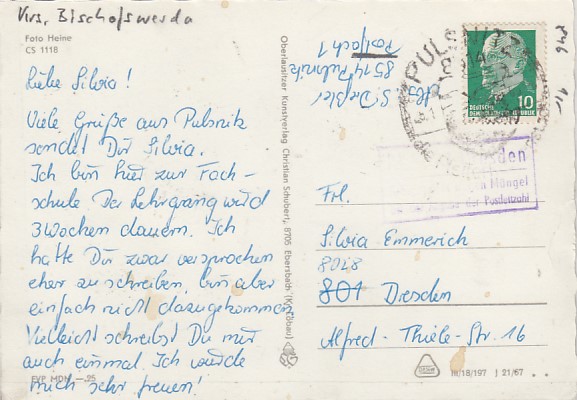 Krs. Bischofswerda
Foto Heine
CS 1118
Liebe Silvia!
Viele Grüße aus Pulsnitz
sendet Dir Silvia.
Ich bin hier zur Fach-
schule. Der Lehrgang wird
3 Wochen dauern. Ich
hatte Dir zwar versprochen
eher zu schreiben, bin aber
einfach nicht dazugekommen.
Vielleicht schreibst Du mir
auch einmal. Ich würde
mich sehr freuen!
EVP MDN —.25
Oberlausitzer Kunstverlag Christian Schubert, 8705 Ebersbach (Kr. Löbau)
Abs.
S. Deßler
8514 Pulsnitz
Postfach 1
PULSNITZ
10
DEUTSCHE
DEMOKRATISCHE REPUBLIK
Mängel
der Postleitzahl
Frl.
Silvia Emmerich
8028
801 Dresden
Alfred-Thiele-Str. 16
III/18/197 J 21/67